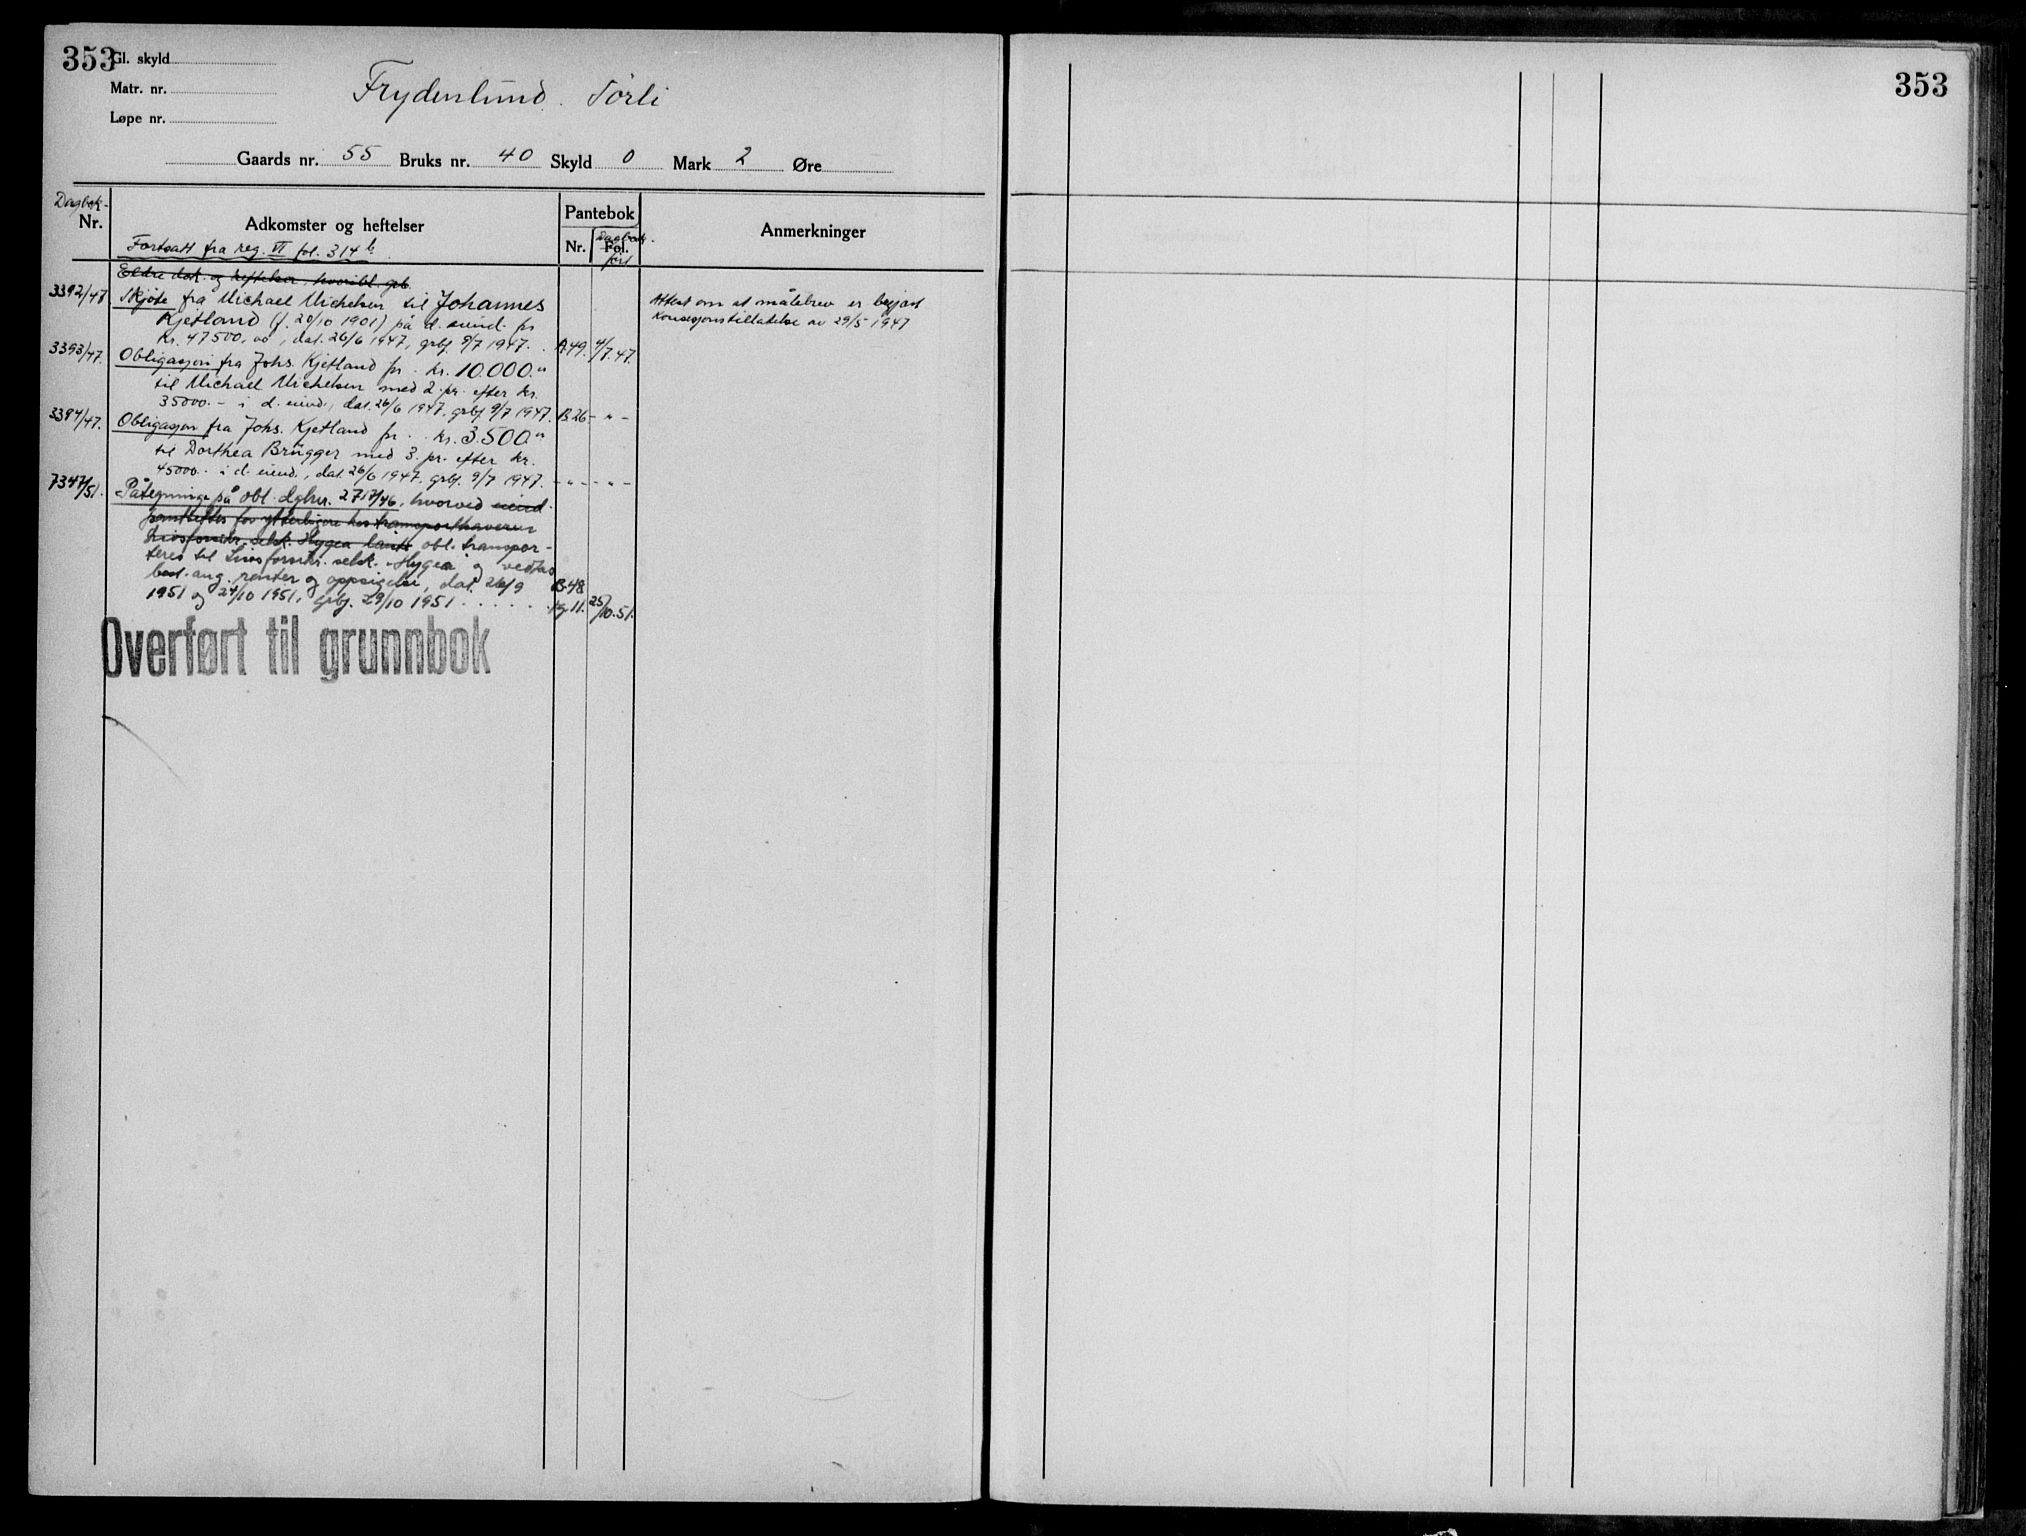 353
Gl. skyld
Matr. nr.
Løpe nr.
Frydenlund. Sørli
Gaards nr. 55 Bruks nr. 40 Skyld 0 Mark 2 Øre
Dagbok-
Nr.
Adkomster og heftelser
Pantebok
Nr.
Fol.
Dagbok-
ført
Anmerkninger
Fortsatt fra reg. VI fol. 314 b
Eldre dok. og heftelser hvoribl. grb.
3392/47 Skjöte fra Michael Michelsen til Johannes
Kjetland (f. 20/10 1901) på d. eiend. for
kr. 47500,00, dat. 26/6 1947, grbf. 9/7 1947. A.49. 4/7.47.
Attest om at målebrev er begjært
Konsesjonstillatelse av 29/5 1947
3393/47. Obligasjon fra Johs. Kjetland for kr. 10.000.-
til Michael Michelsen med 2. pr. efter kr.
35000.- i d. eiend., dat. 26/6 1947, grbf. 9/7 1947. B.26 - " -
3394/47. Obligasjon fra Johs. Kjetland for kr. 3.500.-
til Dorthea Brügger med 3. pr. efter kr.
45000.- i d. eiend., dat. 26/6 1947, grbf. 9/7 1947. - " - - " -
7347/51. Påtegning på obl. dgbnr. 2717/46, hvorved eiend.
pantheftes for ytterligere hos transporthaveren
Livsforsikr. selsk. Hygea lånte obl. transpor-
teres til Livsforsikr. selsk. "Hygea" og vedtas
best. ang. renter og oppsigelse, dat. 26/9
1951 og 24/10 1951, grbf. 29/10 1951 . . . . . .
B.48
pg. 11. 25/10.51.
Overført til grunnbok
353